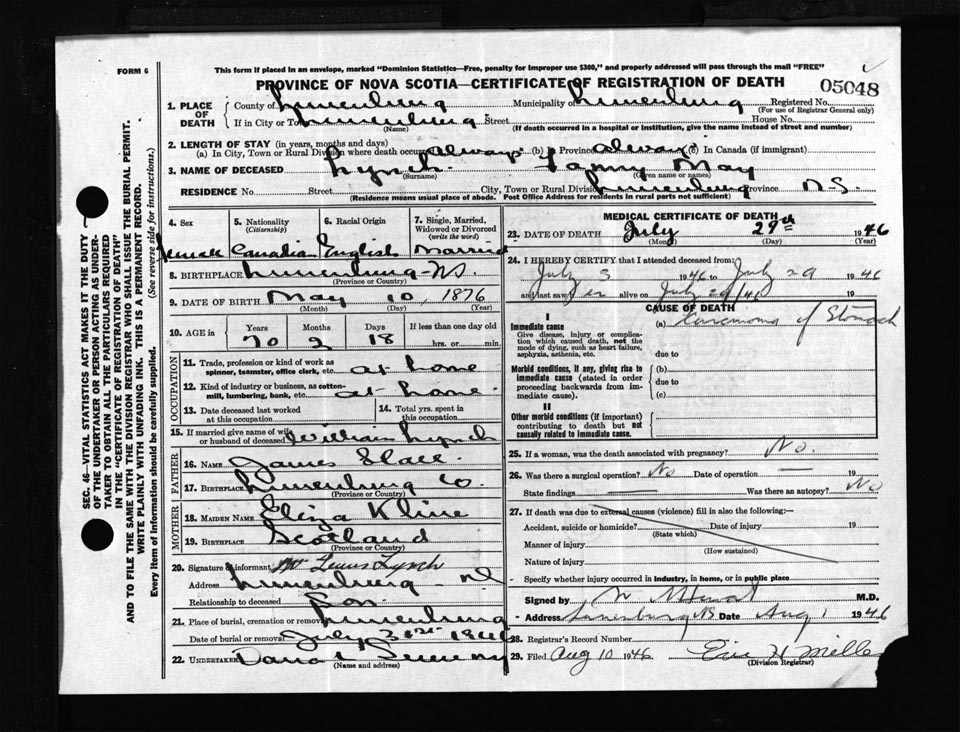 This form if placed in an envelope, marked "Dominion Statistics—Free, penalty for improper use $300," and properly addressed will pass through the mail "FREE"
FORM 6
PROVINCE OF NOVA SCOTIA—CERTIFICATE OF REGISTRATION OF DEATH
05048
1. PLACE OF DEATH
County of Lunenburg Municipality of Lunenburg Registered No.
(For use of Registrar General only)
If in City or Town Lunenburg Street House No.
(Name) (If death occurred in a hospital or institution, give the name instead of street and number)
2. LENGTH OF STAY (in years, months and days)
(a) In City, Town or Rural Division where death occurred always (b) In Province always (c) In Canada (if immigrant)
3. NAME OF DECEASED Lynch Fanny May
(Surname) (Given name or names)
RESIDENCE No. Street City, Town or Rural Division Lunenburg Province N.S.
(Residence means usual place of abode. Post Office Address for residents in rural parts not sufficient)
4. Sex Female
5. Nationality (Citizenship) Canadian
6. Racial Origin English
7. Single, Married, Widowed or Divorced (write the word) Married
8. BIRTHPLACE Lunenburg - N.S.
(Province or Country)
9. DATE OF BIRTH May 10, 1876
(Month) (Day) (Year)
10. AGE in Years Months Days If less than one day old
70 2 18 hrs. or min.
OCCUPATION
11. Trade, profession or kind of work as spinner, teamster, office clerk, etc. at home
12. Kind of industry or business, as cotton-mill, lumbering, bank, etc. at home
13. Date deceased last worked at this occupation
14. Total yrs. spent in this occupation
15. If married give name of wife or husband of deceased William Lynch
FATHER
16. NAME James
17. BIRTHPLACE Lunenburg Co.
(Province or Country)
MOTHER
18. MAIDEN NAME Eliza Kline
19. BIRTHPLACE Scotland
(Province or Country)
20. Signature of informant Mr Lewis Lynch
Address Lunenburg - NS
Relationship to deceased Son
21. Place of burial, cremation or removal Lunenburg
Date of burial or removal July 31st 1946
22. UNDERTAKER
(Name and address)
MEDICAL CERTIFICATE OF DEATH
23. DATE OF DEATH July 29th 1946
(Month) (Day) (Year)
24. I HEREBY CERTIFY that I attended deceased from:
July 3 1946 to July 29 1946
and last saw her alive on July 29/46 19
CAUSE OF DEATH
I
Immediate cause
Give disease, injury or complication which caused death, not the mode of dying, such as heart failure, asphyxia, asthenia, etc.
(a) Carcinoma of Stomach
due to
Morbid conditions, if any, giving rise to immediate cause (stated in order proceeding backwards from immediate cause).
(b)
due to
(c)
II
Other morbid conditions (if important) contributing to death but not causally related to immediate cause.
25. If a woman, was the death associated with pregnancy? No.
26. Was there a surgical operation? No Date of operation — 19
State findings — Was there an autopsy? No
27. If death was due to external causes (violence) fill in also the following:—
Accident, suicide or homicide? Date of injury 19
(State which)
Manner of injury
(How sustained)
Nature of injury
Specify whether injury occurred in industry, in home, or in public place
Signed by M.D.
Address Lunenburg NS Date Aug 1 1946
28. Registrar's Record Number
29. Filed Aug 10 1946
(Division Registrar)
SEC. 46—VITAL STATISTICS ACT MAKES IT THE DUTY
OF THE UNDERTAKER OR PERSON ACTING AS UNDER-
TAKER TO OBTAIN ALL THE PARTICULARS REQUIRED
IN THE "CERTIFICATE OF REGISTRATION OF DEATH"
AND TO FILE THE SAME WITH THE DIVISION REGISTRAR WHO SHALL ISSUE THE BURIAL PERMIT.
WRITE PLAINLY WITH UNFADING INK. THIS IS A PERMANENT RECORD.
Every item of information should be carefully supplied. (See reverse side for instructions.)